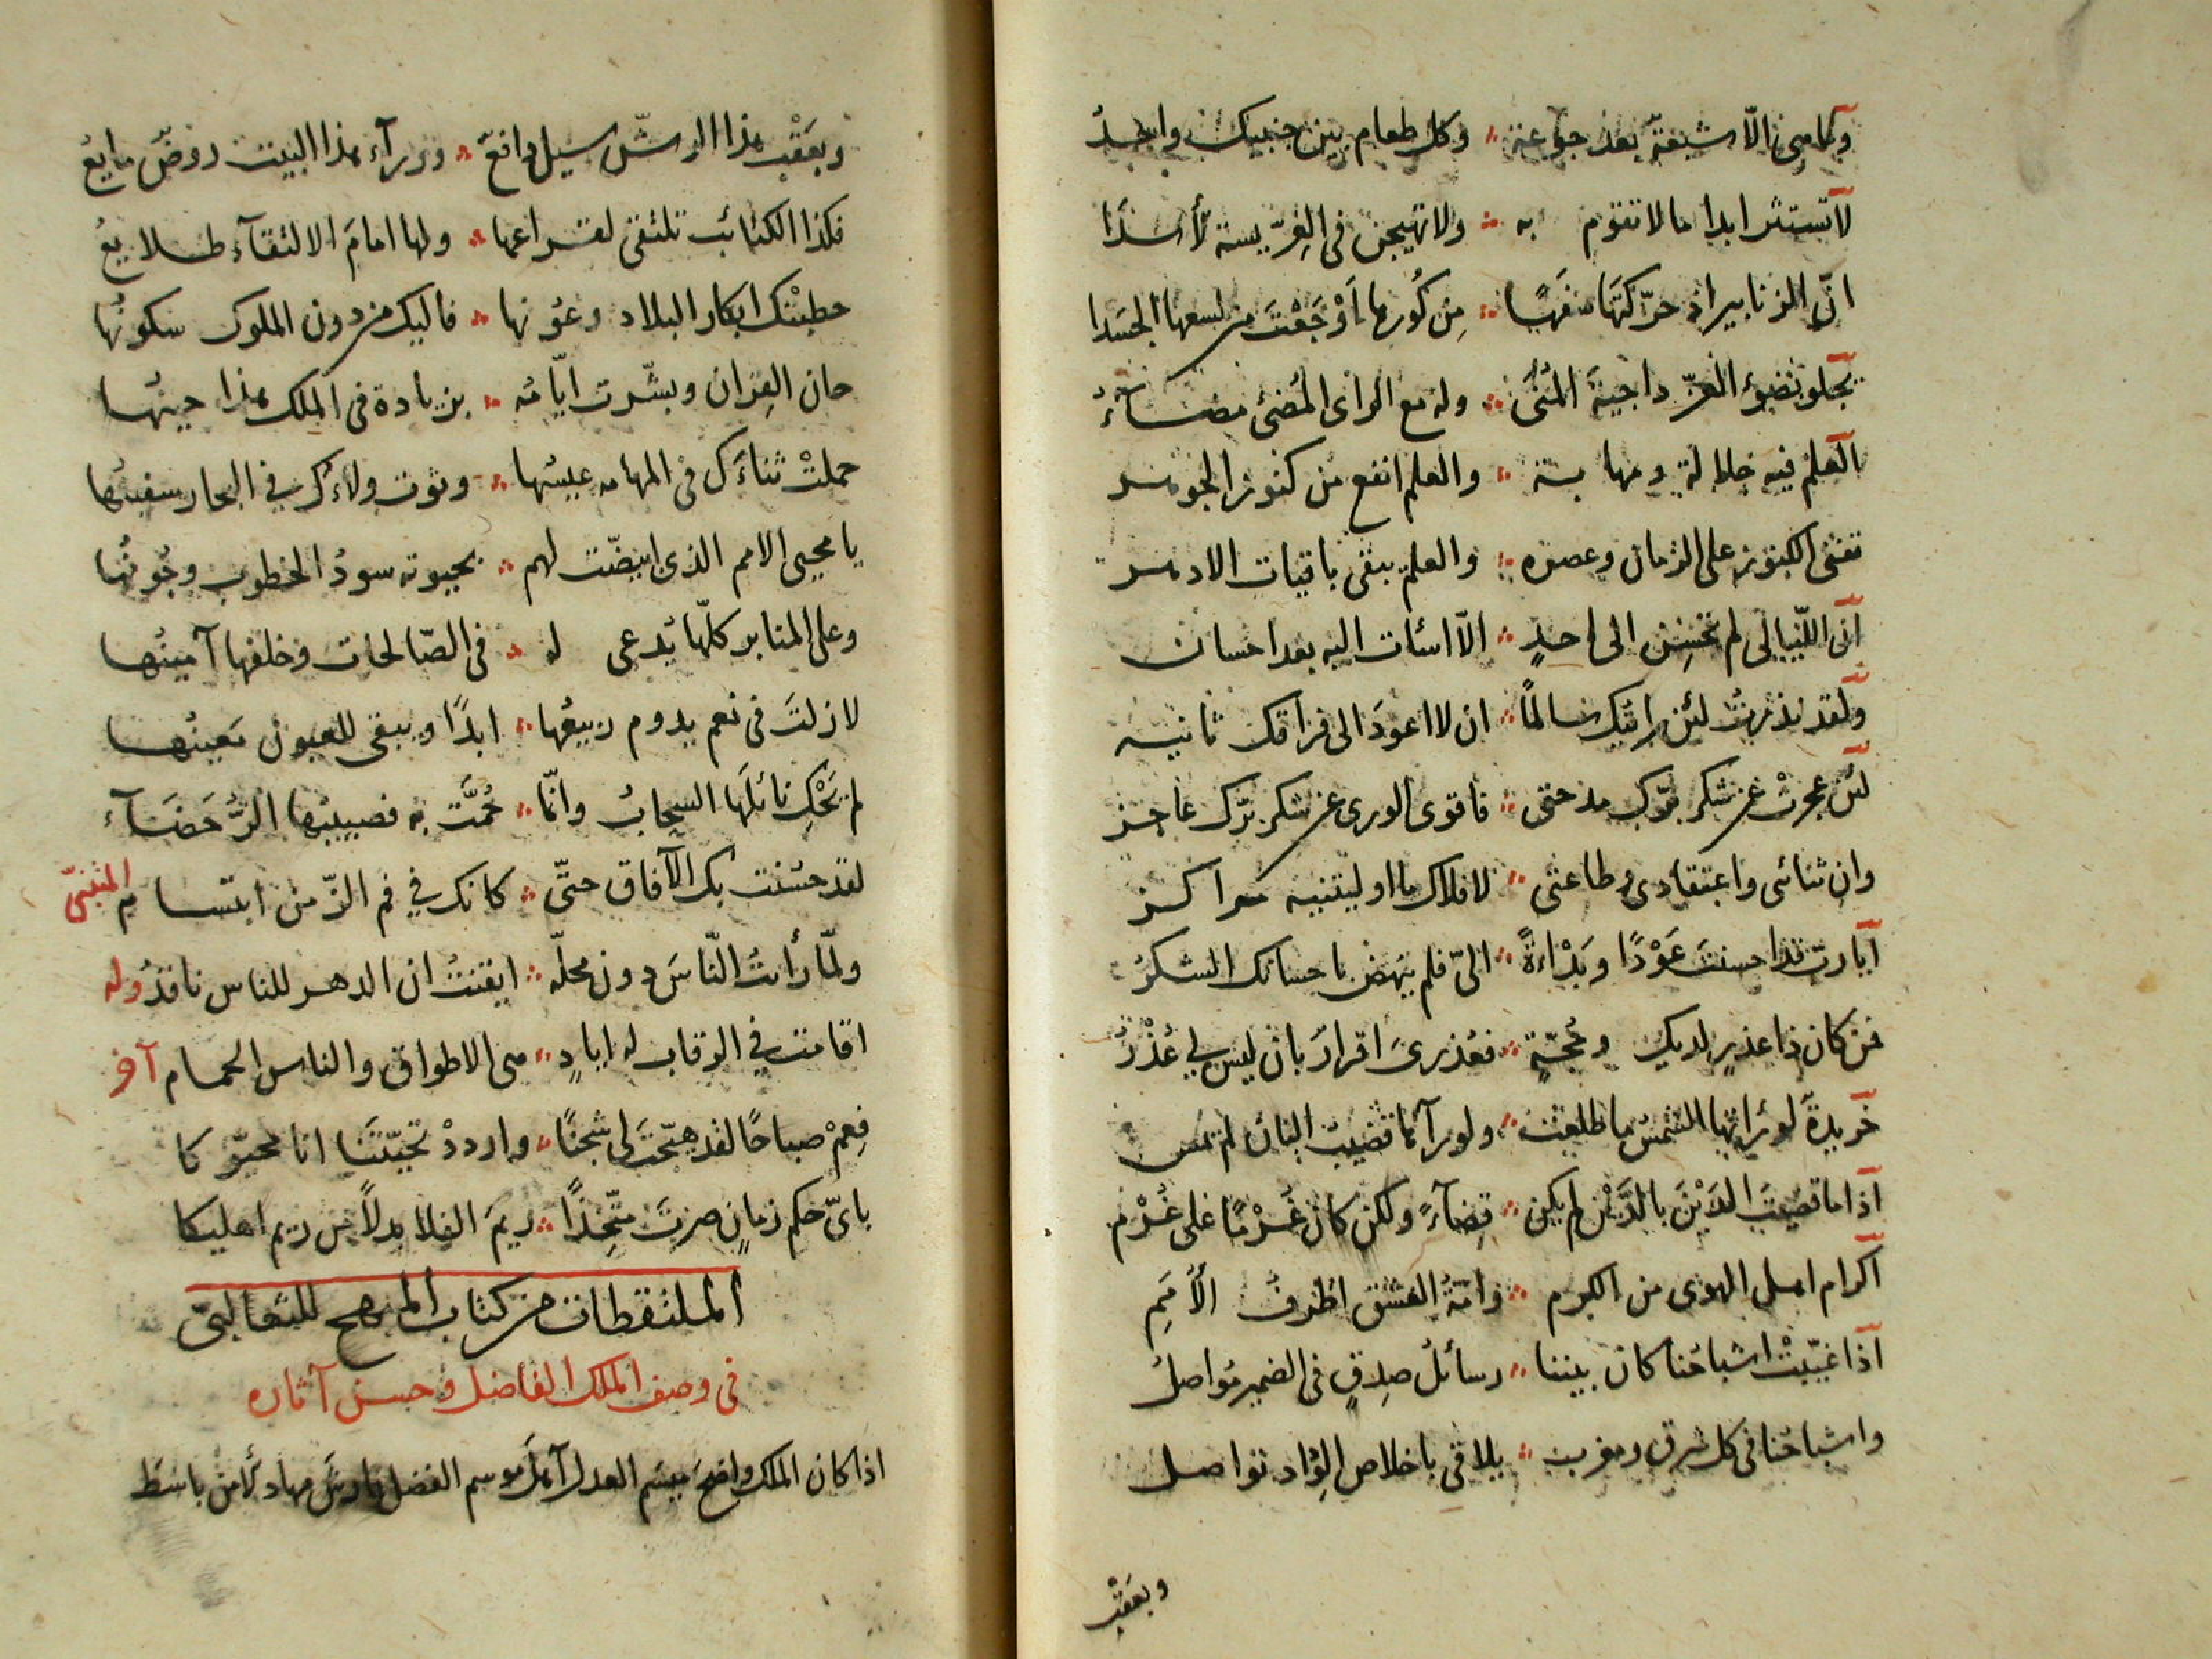 وما هي الّا شبعة بعد جوعة ؞ وكل طعام بين جنبيك واحدُ
لا تستثر ابدا ما لا تقوم به ؞ ولا تهيجن في العرّيسة الأسدا
انّ الزنابير ان حرّكتَها سفهًا ؞ مِن كُورها اَوْجَعْتَ من لسعها الجسدا
يجلو بضوء العزّ داجية المُنَى ؞ وله مع الرأى المُضئ مضاءُ
العلم فيه جلالة ومهابة ؞ والعلم انفع من كنوز الجوهر
تفنى الكنوز على الزمان وعصره ؞ والعلم يبقى باقيات الادهر
انّ اللّيالى لم تحسِن الى احدٍ ؞ الّا اسئات اليه بعد احسان
ولقد نذرتُ لئن رايتك سالمًا ؞ ان لا اعودَ الى فراقك ثانيه
لئن عجزتْ عن شكر برّك مدحتى ؞ فاقوى الورى عن شكر برّك عاجز
وان ثنائى واعتقادى وطاعتى ؞ لافلاك ما اوليتنيه مراكز
أيا ربّ قد احسنتَ عَوْدًا وبَدْاءةً ؞ الىّ فلم ينهض باحسانك الشكرُ
فمن كان ذا عذرٍ لديك وحُجّةٍ ؞ فعُذرىَ اقرارٌ بان ليس لي عُذْرُ
خريدةٌ لو رأتها الشمسُ ما طلعت ؞ ولو رآها قضيب البان لم يَمس
اذا ما قضيتَ الدَيْنَ بالدَّيْن لم يكن ؞ قضآءً ولكن كان غُرْمًا على غُرْم
اكرام اهل الهوى من الكرم ؞ وامّةُ العشق اظرفُ الأُمَمِ
اذا غيّبتْ اشباحُنا كان بيننا ؞ رسائلُ صِدقٍ فى الضمير تواصلُ
واشباحُنا فى كل شرق ومغرب ؞ يلاقى باخلاص الوِداد تواصل
وبعَقْب
وبعَقْب هذا الرشّ سيل دافعٌ ؞ وورآء هذا البيت روضٌ مايعُ
فكذا الكتائب تلتقى لقراعها ؞ ولها امامَ الالتقآء طلايعُ
خطبتْك ابكار البلاد وعُونها ؞ فاليك من دون الملوك سكونُها
حان القِران وبشّرت ايّامُه ؞ بزيادة فى الملك هذا حينُها
حملتْ ثناءَك فى المهامه عيسُها ؞ وثوت ولاءَك في البحار سفينُها
يا محيى الامم الذى ابيضّت لهم ؞ بحيوته سودُ الخطوب وجُونُها
وعلى المنابر كلّها يُدعى له ؞ فى الصّالحات وخلفها آمينُها
لا زلتَ فى نعم يدوم ربيعُها ؞ ابدًا ويبقى للعيون مَعينُها
لم تَحْكِ نائلَها السحابُ وانّما ؞ حُمَّت به فصبيبُها الرُّحَضَآء
لقد حسُنت بك الآفاق حتّى ؞ كانك في فم الزّمن ابتسام المتنبىّ
ولمّا رأيتُ النّاسَ دون محلّه ؞ ايقنتُ ان الدهر للناس ناقدُ وله
اقامت في الرقاب له ايادٍ ؞ هى الاطواق والناس الحمام آخر
فعِمْ صباحًا لقد هيّجتَ لى شجنًا ؞ واردد تحيّتَنا انا محيّوكا
باىّ حكم زمانٍ صرتَ متّخِذًا ؞ ريمَ الفلا بدلًا من ريم اهليكا
الملتقطات من كتاب المبهج للثعالبىّ
فى وصف الملك الفاضل وحسن آثاره
اذا كان الملك واضح ميسَم العدل آهلَ موسم الفضل فارشَ مهاد الأمن باسَط